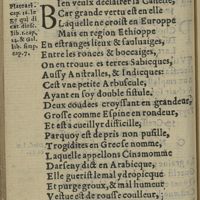 Plateari.
cap. 18. Et
Et qui di
car. dioсс.
lib. 1. cap.
14. & Gal.
lib. simp.
cap. 7.
Bien veux declairer la Canelle,
Car grande vertu est en elle
Laquelle ne croist en Europpe
Mais en region Ethioppe
En estranges lieux & sauluaiges,
Entre les ronces & boccaiges,
On en trouue es terres Sabiecques,
Aussy Australles, & Indicques:
Cest vne petite Arbuscule,
Ayant en soy double fistule.
Deux coudées croyssant en grandeur,
Grosse comme Espine en rondeur,
Et est a cueillyr difficille,
Parquoy est de pris non pusille,
Trogidites en Grecse nomme,
Laquelle appellons Cinamomme
Darseny dict en Arabicque,
Elle guerist le mal ydropicque
Et purge groux, & mal humeur
Vestue est de rousse couilleur,